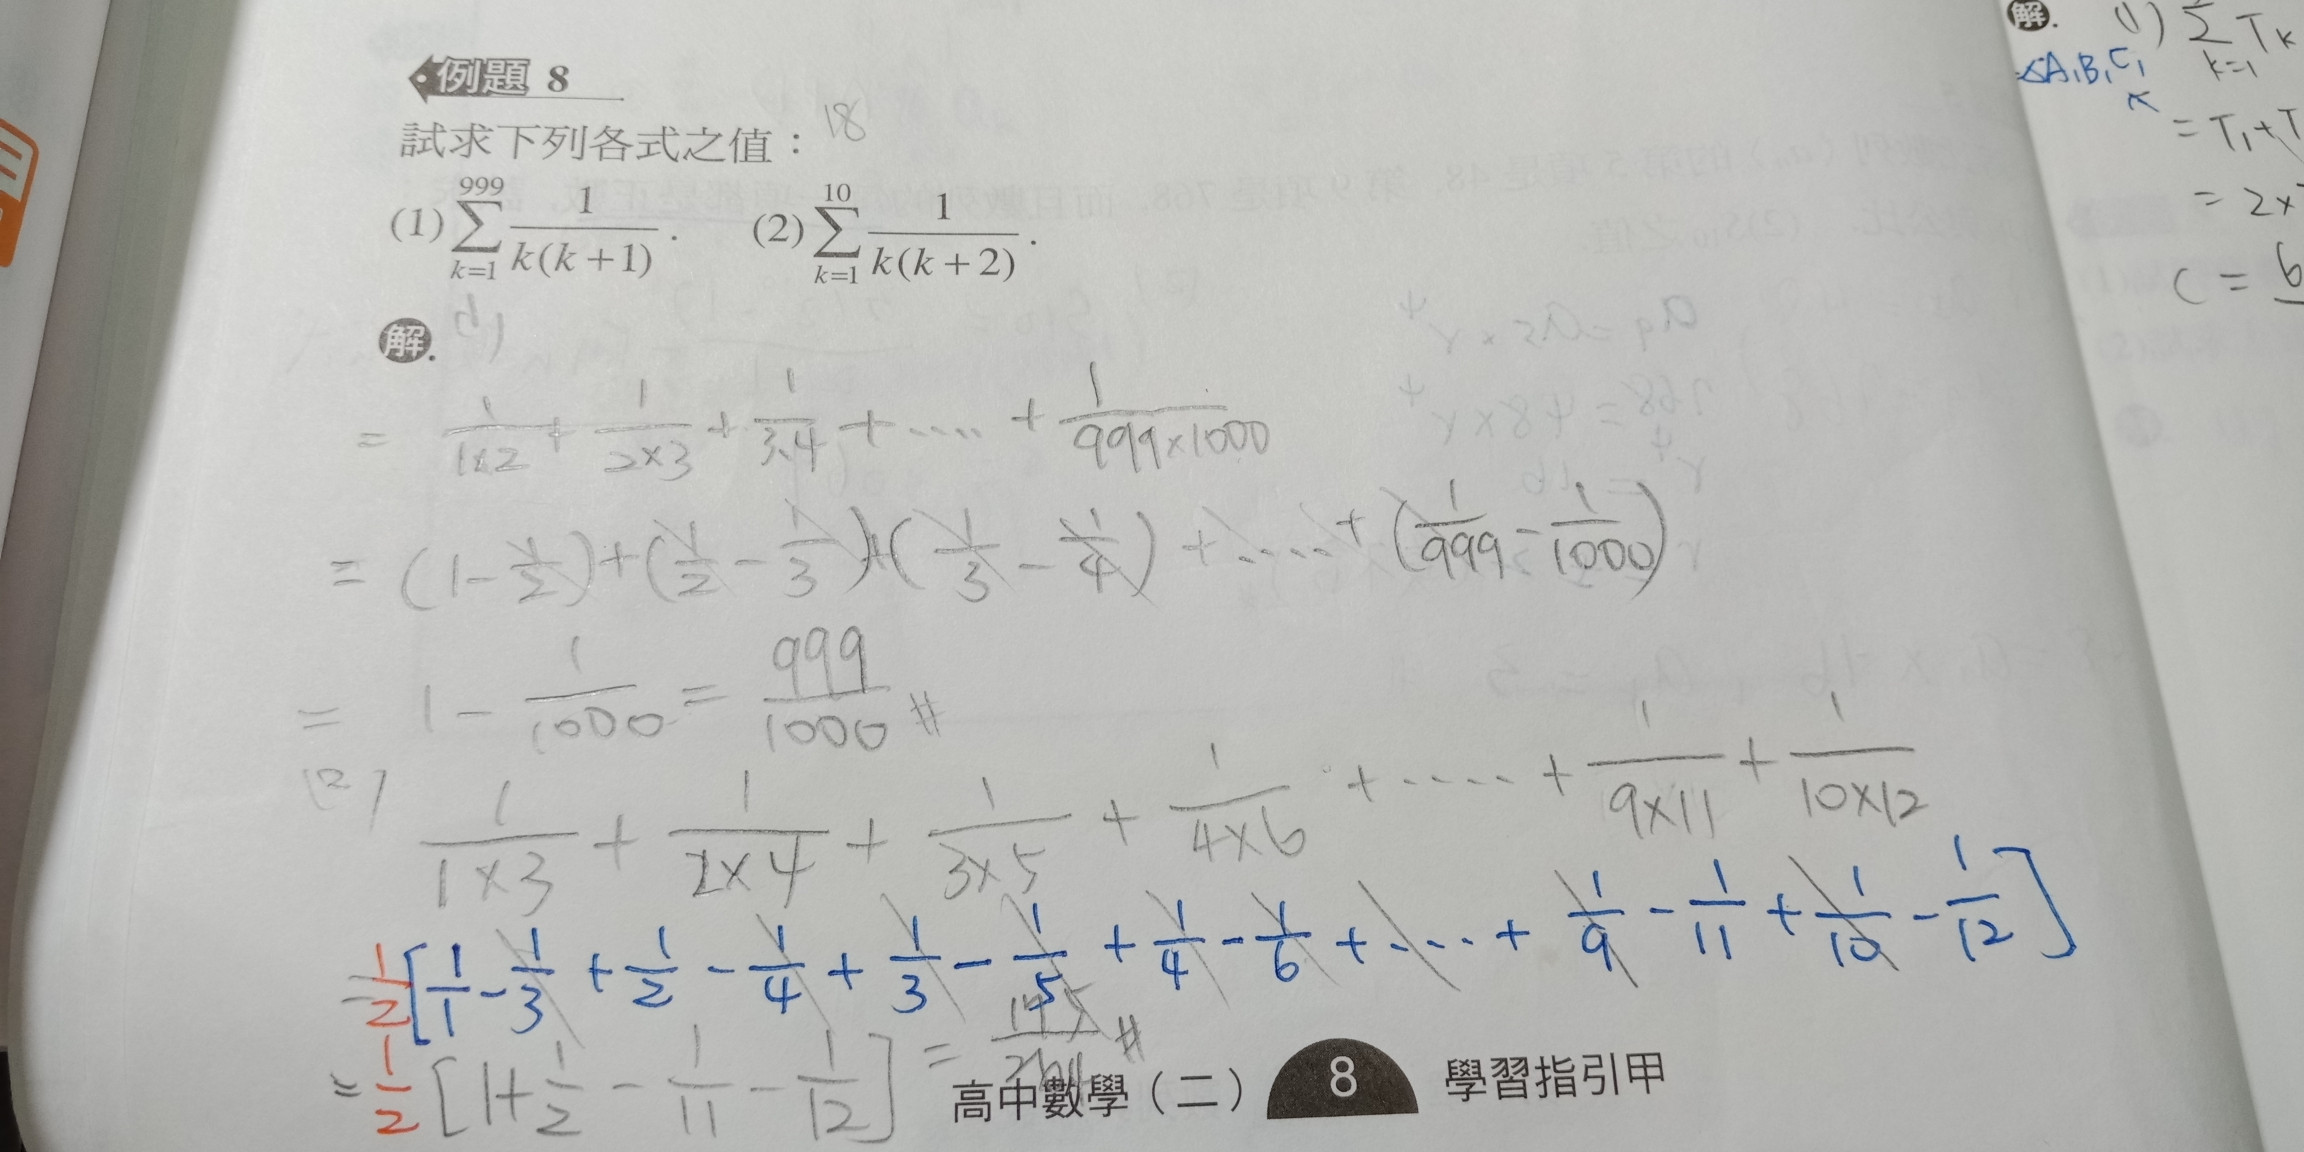 例題 8
試求下列各式之值：18
(1) \sum_{k=1}^{999} \frac{1}{k(k+1)}. (2) \sum_{k=1}^{10} \frac{1}{k(k+2)}.
解.
= \frac{1}{1×2} + \frac{1}{2×3} + \frac{1}{3.4} + .... + \frac{1}{999×1000}
= (1-\frac{1}{2})+(\frac{1}{2}-\frac{1}{3})+(\frac{1}{3}-\frac{1}{4}) + .... + (\frac{1}{999}-\frac{1}{1000})
= 1-\frac{1}{1000} = \frac{999}{1000} #
(2) \frac{1}{1×3} + \frac{1}{2×4} + \frac{1}{3×5} + \frac{1}{4×6} + ..... + \frac{1}{9×11} + \frac{1}{10×12}
= \frac{1}{2} [\frac{1}{1}-\frac{1}{3}+\frac{1}{2}-\frac{1}{4}+\frac{1}{3}-\frac{1}{5}+\frac{1}{4}-\frac{1}{6}+ .... + \frac{1}{9}-\frac{1}{11}+\frac{1}{10}-\frac{1}{12}]
= \frac{1}{2} [1+\frac{1}{2}-\frac{1}{11}-\frac{1}{12}] = \frac{175}{264} #
高中數學（二） 8 學習指引甲
解. (1) \sum_{k=1} T_k
△A₁B₁C₁
= T₁+T
= 2×
C =